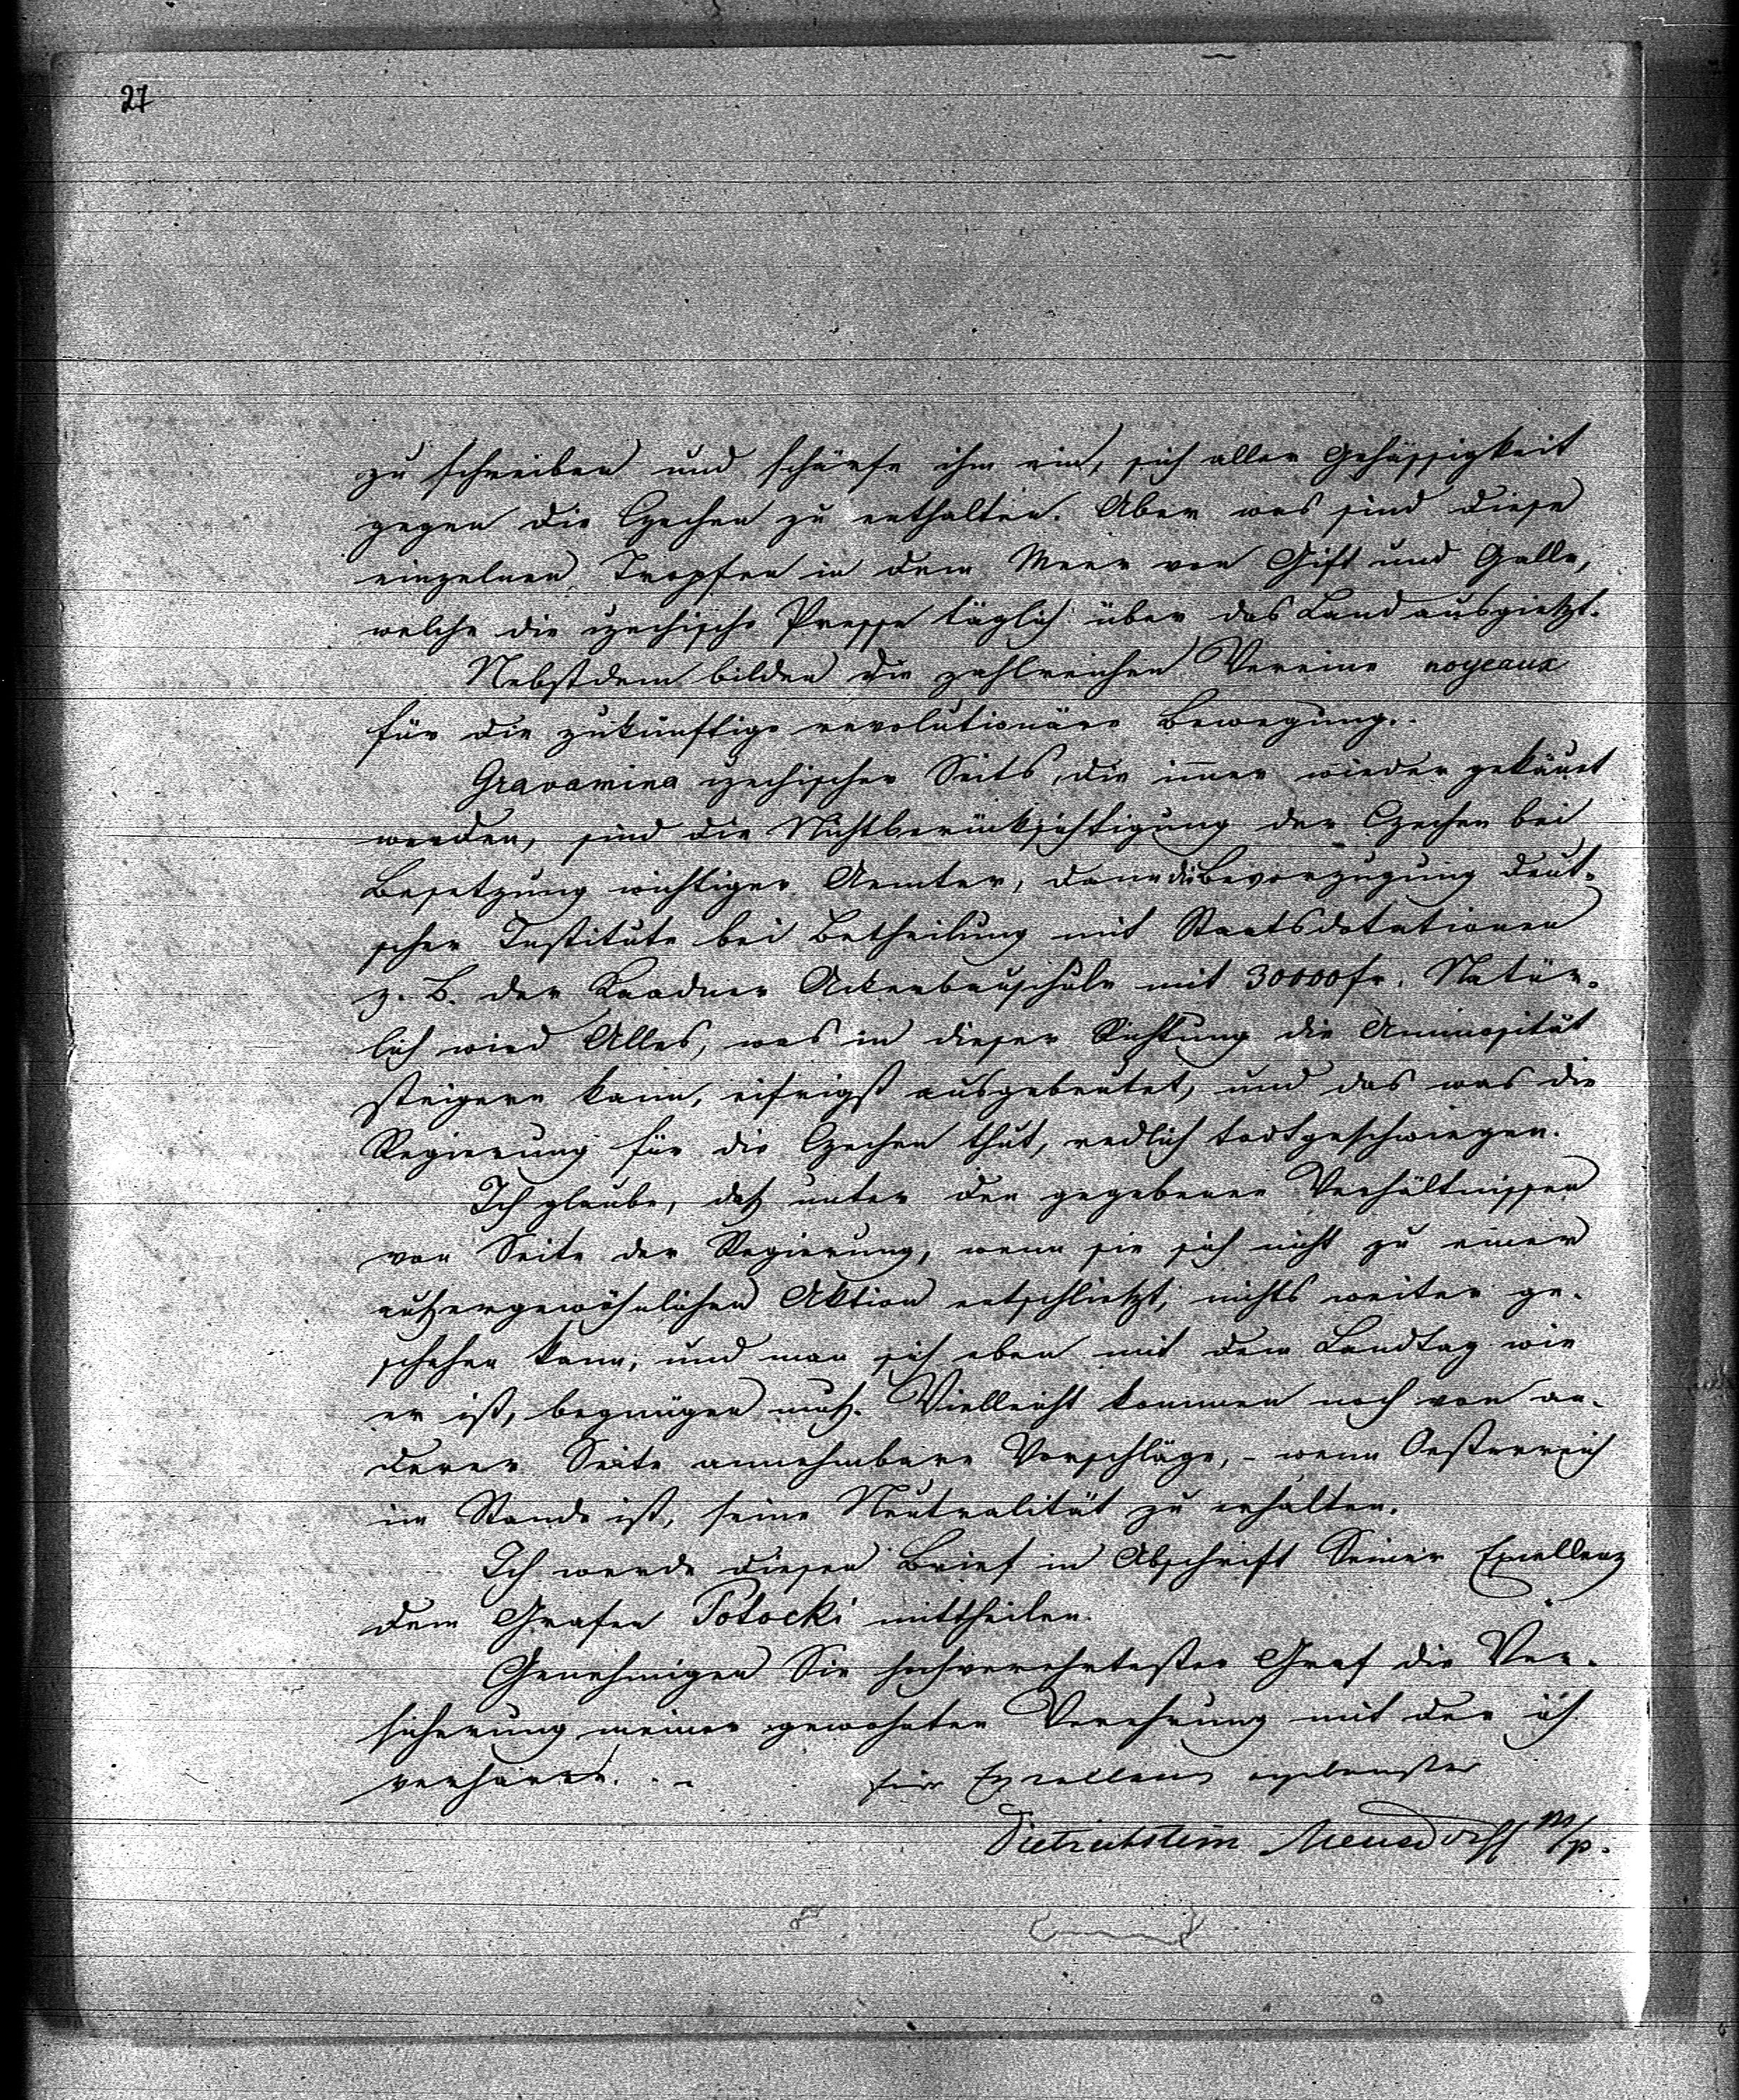 27
zu schreiben und schärfe ihm ein, sich aller Gehässigkeit
gegen die Czechen zu enthalten. Aber was sind diese
einzelnen Tropfen in dem Meer von Gift und Galle,
welche die czechische Presse täglich über das Land ausgießt.
Nebstdem bilden die zahlreichen Vereine noyeaux
für die zukünftige revolutionäre Bewegung.
Gravamina czechischer Seits, die immer wieder gekäuet
werden, sind die Nichtberücksichtigung der Czechen bei
Besetzung wichtiger Aemter, dann die Bevorzugung deut-
scher Institute bei Betheilung mit Staatsdotationen
z. B. der Kaadner Ackerbauschule mit 30000 fr. Natür-
lich wird Alles, was in dieser Richtung die Animosität
steigern kann, eifrigst ausgebeutet, und das was die
Regierung für die Czechen thut, redlich todtgeschwiegen.
Ich glaube, daß unter den gegebenen Verhältnissen
von Seite der Regierung, wenn sie sich nicht zu einer
außergewöhnlichen Aktion entschließt, nichts weiter ge-
schehen kann, und man sich eben mit dem Landtag wie
er ist, begnügen muß. Vielleicht kommen noch von an-
derer Seite annehmbare Vorschläge, - wenn Oesterreich
im Stande ist, seine Neutralität zu erhalten.
Ich werde diesen Brief in Abschrift Seiner Excellenz
dem Grafen Potocki mittheilen.
Genehmigen Sie hochverehrtester Graf die Ver-
sicherung meiner gewohnten Verehrung mit der ich
verharre. Eure Excellenz ergebenster
Dietrichstein Mensdorff m/p.